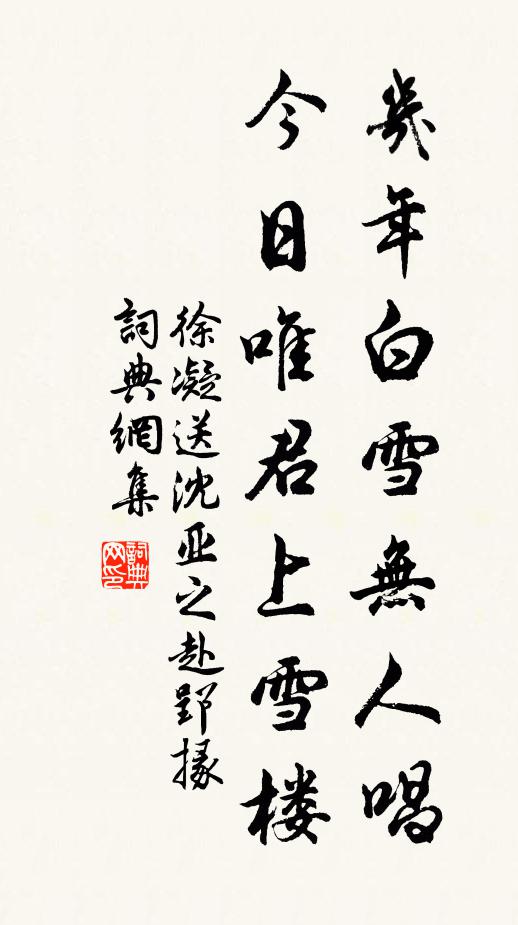 幾年白雪無人唱
今日唯君上雪楼
徐凝送沈亚之赴郢掾
詞典網集
詞典
网印